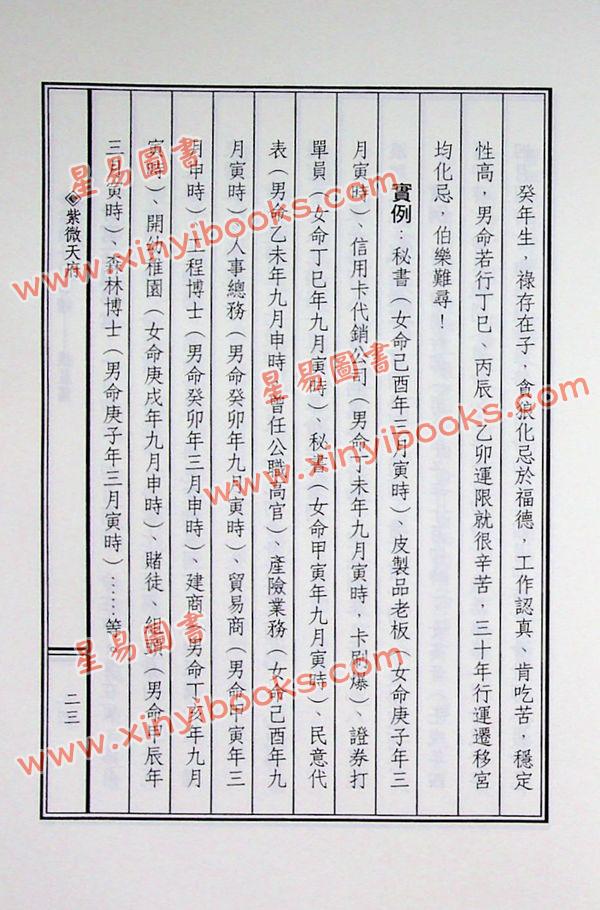 癸年生，祿存在子，貪狼化忌於福德，工作認真、肯吃苦，穩定
性高，男命若行丁巳、丙辰、乙卯運限就很辛苦，三十年行運遷移宮
均化忌，伯樂難尋！
實例：秘書（女命己酉年三月寅時）、皮製品老板（女命庚子年三
月寅時）、信用卡代銷公司（男命丁未年九月寅時，卡刷爆）、證券打
單員（女命丁巳年九月寅時）、秘書（女命甲寅年九月寅時）、民意代
表（男命乙未年九月申時，曾任公職高官）、產險業務（女命己酉年九
月寅時）、人事總務（男命癸卯年九月寅時）、貿易商（男命甲寅年三
月申時）、工程博士（男命癸卯年三月申時）、建商（男命丁亥年九月
寅時）、開幼稚園（女命庚戌年九月申時）、賭徒、組頭（男命甲辰年
三月寅時）、森林博士（男命庚子年三月寅時）……等。
紫微天府
二三
星易圖書
www.xinyibooks.com
星易圖書
www.xinyibooks.com
星易圖書
www.xinyibooks.com